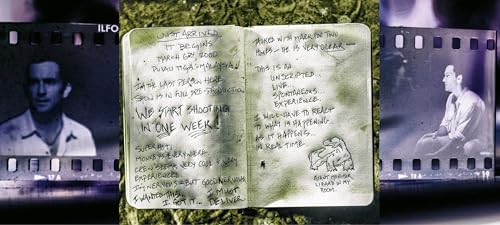 ILFO
JUST ARRIVED.
IT BEGINS
MARCH 6th, 2000
PULAU TIGA - MALAYSIA
I'M THE LAST PERSON HERE.
SHOW IS IN FULL PRE-PRODUCTION
WE START SHOOTING
IN ONE WEEK!
SUPER HOT!
MONKEYS EVERYWHERE.
CREW SEEMS VERY COOL & VERY
EXPERIENCED.
I'M NERVOUS - BUT GOOD NERVOUS
I WANTED THIS...
I GOT IT... I MUST
DELIVER
TALKED WITH MARK FOR TWO
HOURS - HE IS VERY CLEAR
THIS IS AN
UNSCRIPTED...
LIVE...
SPONTANEOUS...
EXPERIENCE.
I WILL HAVE TO REACT
TO WHAT IS HAPPENING...
AS IT HAPPENS...
IN REAL TIME.
GIANT MONITOR
LIZARD IN MY
ROOM.